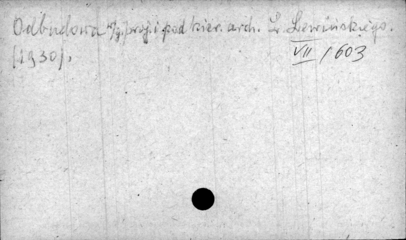 Odbudowa w/g proj. i pod kier. arch. L. Lewińskiego.
(1930).
VII / 603